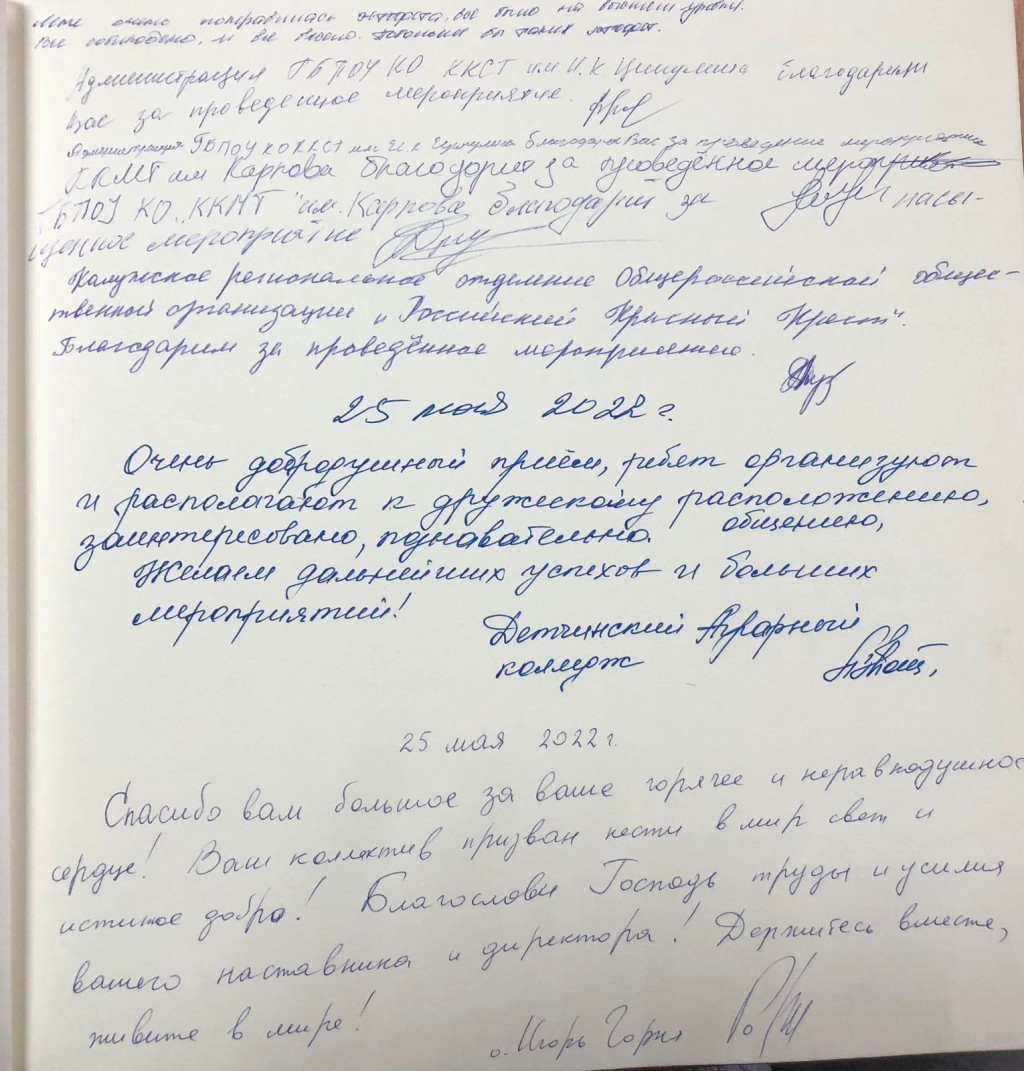 Мне очень понравилась эстафета, все было на высшем уровне.
Все соблюдено, и все весело. Побольше бы таких эстафет.
Администрация ГБПОУ КО ККСТ им. И.К. Ципулина благодарит
Вас за проведенное мероприятие.
Администрация ГБПОУ КО ККСТ им. И.К Ципулина благодарит Вас за проведение мероприятия
ККМТ им Карпова благодарит за проведённое
ГБПОУ КО "ККМТ" им. Карпова благодарит за насы-
щенное мероприятие
Калужское региональное отделение Общероссийской общес-
твенной организации "Российский Красный Крест".
Благодарим за проведённое мероприятие.
25 мая 2022 г.
Очень добродушный приём, ребят организуют
и располагают к дружескому расположению,
общению,
заинтересовано, познавательно.
Желаем дальнейших успехов и больших
мероприятий!
Детчинский Аграрный
колледж
25 мая 2022 г.
Спасибо вам большое за ваше горячее и неравнодушное
сердце! Ваш коллектив призван нести в мир свет и
истинное добро! Благослови Господь труды и усилия
вашего наставника и директора! Держитесь вместе,
живите в мире!
о. Игорь